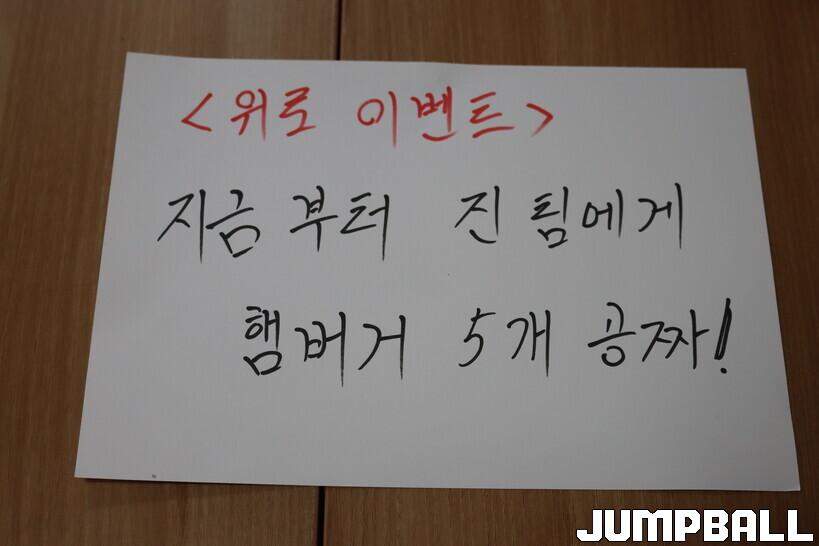 <위로 이벤트>
지금부터 진 팀에게
햄버거 5개 공짜!
JUMPBALL